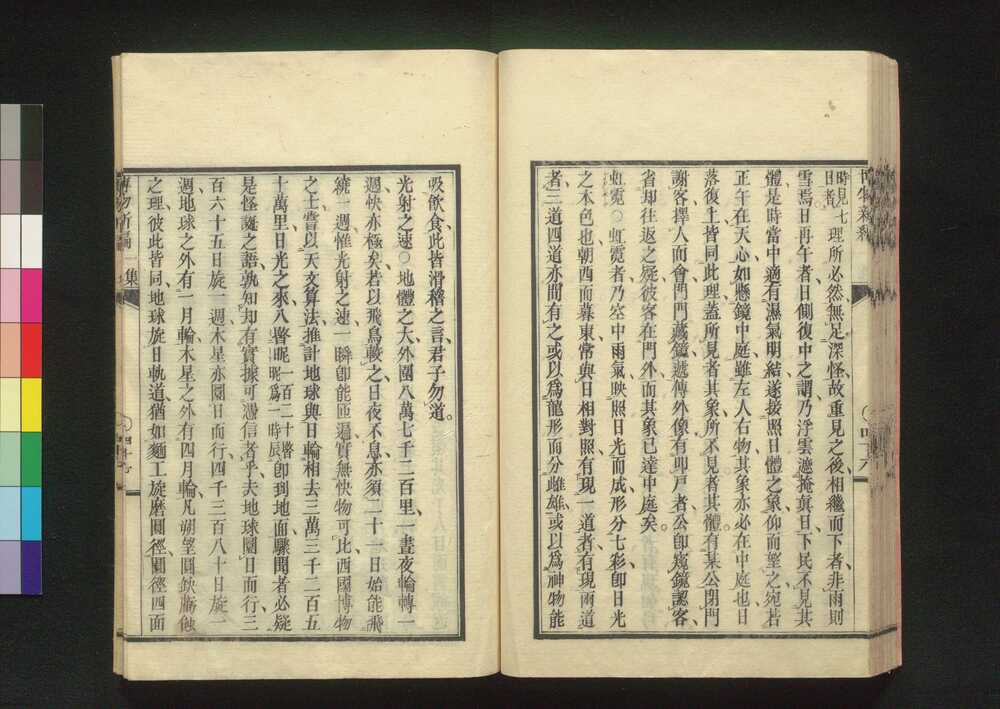 時見七日者理所必然、無足深怪、故重見之後、相繼而下者、非雨則
雪焉、日再午者、日側復中之謂、乃浮雲遮掩眞日、下民不見其
體、是時當中適有濕氣明結、遂接照日體之象、仰而望之、宛若
正午在天心、如懸鏡中庭、雖左人右物、其象亦必在中庭也、日
落復上、皆同此理、蓋所見者其象、所不見者其體、有某公閉門
謝客、擇人而會、門門藏鏡、遞傳外像、有叩戶者、公卽窺鏡認客、
省却往返之疑、彼客在門外、而其象已達中庭矣。
虹霓○虹霓者、乃空中雨氣映照日光而成形、分七彩、卽日光
之本色也、朝西而暮東、常與日相對照、有現一道者、有現兩道
者、三道四道、亦間有之、或以爲龍形而分雌雄、或以爲神物能
吸飲食、此皆滑稽之言、君子勿道。
光射之速○地體之大、外圍八萬七千二百里、一晝夜輪轉一
週、快亦極矣、若以飛鳥較之、日夜不息、亦須二十一日、始能飛
繞一週、惟光射之速、一瞬卽能匝遍、實無快物可比、西國博物
之士、嘗以天文算法、推計地球與日輪相去三萬三千二百五
十萬里、日光之來、八瞥呢、一百二十瞥呢爲一時辰卽到地面、驟聞者必疑
是怪誕之語、孰知却有實據可憑信者乎、夫地球圜日而行、三
百六十五日旋一週、木星亦圜日而行、四千三百八十日旋一
週、地球之外有一月輪、木星之外有四月輪、凡朔望圓缺虧蝕
之理、彼此皆同、地球旋日軌道、猶如麵工旋磨圓徑、圓徑四面